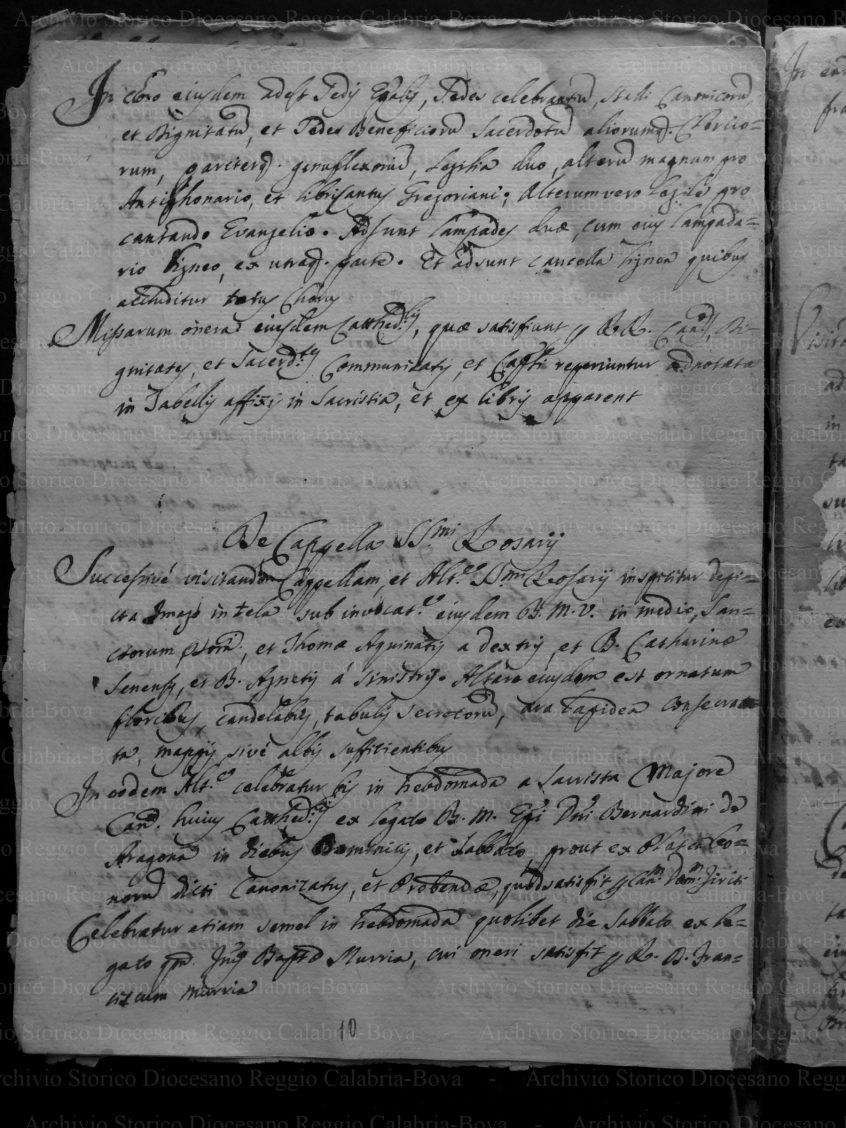 In choro eiusdem adest Sedis Epalis, Sedes celebrantiu, stalli Canonicoru
et Dignitatu, et Sedes Beneficioru Sacerdotu aliorumq. Clerico=
rum, pariterq. genuflexoriu, Legilia duo, alteru magnum pro
Antiphonario, et libri cantus Gregoriani; Alterum vero legile pro
cantando Evangelio. Adsunt lampades duæ, cum eius lampada=
rio ligneo, ex utraq. parte. Et adsunt cancella lignea quibus
accluditur totus Chorus
Missarum onera eiusdem Catthed.lis, quæ satisfiunt p RR. Can.s, Di=
gnitates, et Sacerd.tes Communitatis, et reperiuntur adnotata
in Tabellis affixis in Sacristia, et ex libris apparent
De Cappella SS.mi Rosarij
Successivé visitando Cappellam, et Alt.e SS.mi Rosarij inspicitur depi=
cta Imago in tela sub invocat.e eiusdem B. M. V. in medio, San=
ctorum et Thomæ Aquinatis a dextris, et B. Catharinæ
Senensis, et B. Agnetis á sinistris. Altare eiusdem est ornatum
floribus, candelabris, tabulis secretoru, ara lapidea consecra=
ta, mappis sivé albis sufficientibus
In eodem Alt.e celebratur bis in hebdomada a Sacrista Majore
Can. huius Catthed.lis ex legato B. M. Epi Dni Bernardini de
Aragona in diebus Dominicis, et Sabbato, prout ex Platea bo=
noru dicti Canonicatus, et Prebendæ, quod satisfit p Can.
Celebratur etiam semel in hebdomada quolibet die Sabbato ex le=
gato qm Bapta Murria, cui oneri satisfit p R. D. Fran=
ciscum Murria
10